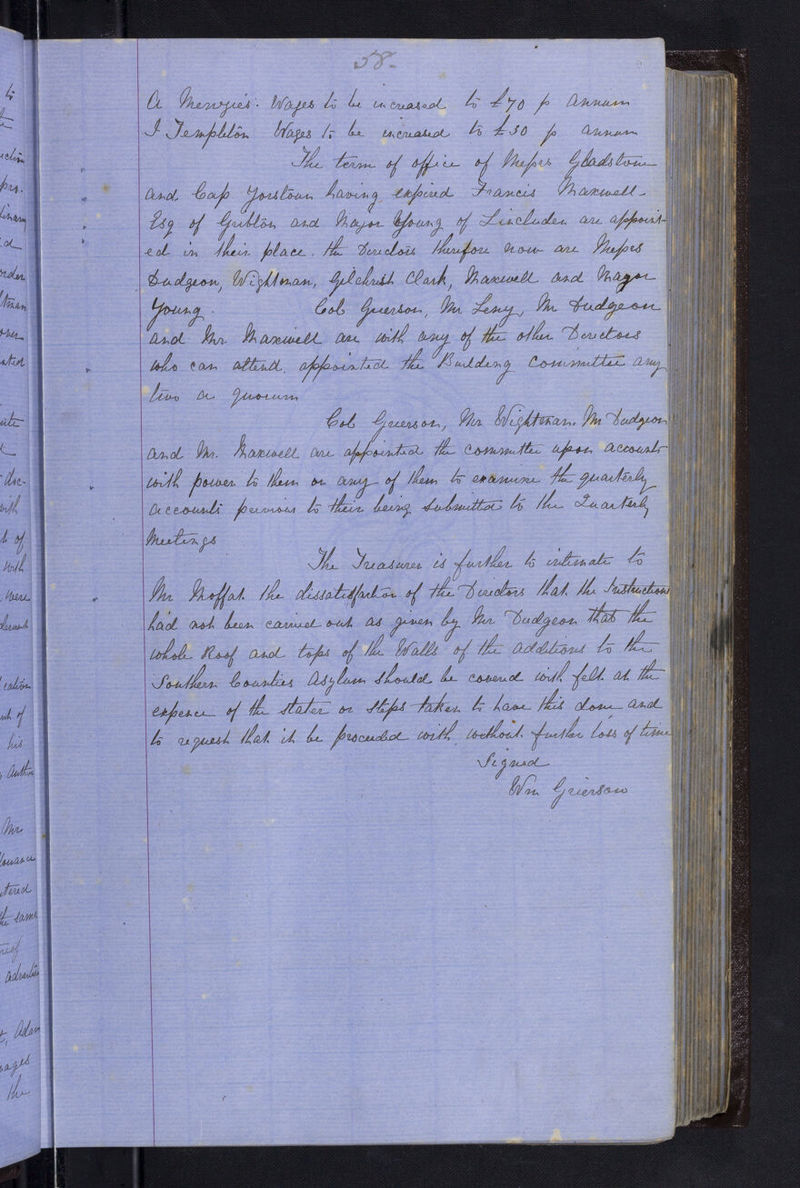 58-
A Menzies. Wages to be increased to £70 p annum
J Templeton Wages to be increased to £50 p annum
The term of office of Messrs Gladstone
and Cap Yorstoun having expired Francis Maxwell
Esq of Gribton and Major Young of Lincluden are appoint-
ed in their place. the Directors therefore now are Messrs
Dudgeon, Wightman, Gilchrist Clark, Maxwell and Major
Young. Col Grierson, Mr Leny, Mr Dudgeon
and Mr Maxwell are with any of the other Directors
who can attend, appointed the Building Committee any
two a quorum
Col Grierson, Mr Wightman Mr Dudgeon
and Mr. Maxwell are appointed the committee upon accounts
with power to them or any of them to examine the quarterly
accounts previous to their being submitted to the Quarterly
Meetings
The Treasurer is further to intimate to
Mr Moffat the dissatisfaction of the Directors that the Instructions
had not been carried out as given by Mr Dudgeon that the
whole Roof and tops of the Walls of the additions to the
Southern Counties Asylum should be covered with felt at the
expence of the slater or steps taken to have this done and
to request that it be proceeded with without further loss of time
Signed
Wm Grierson